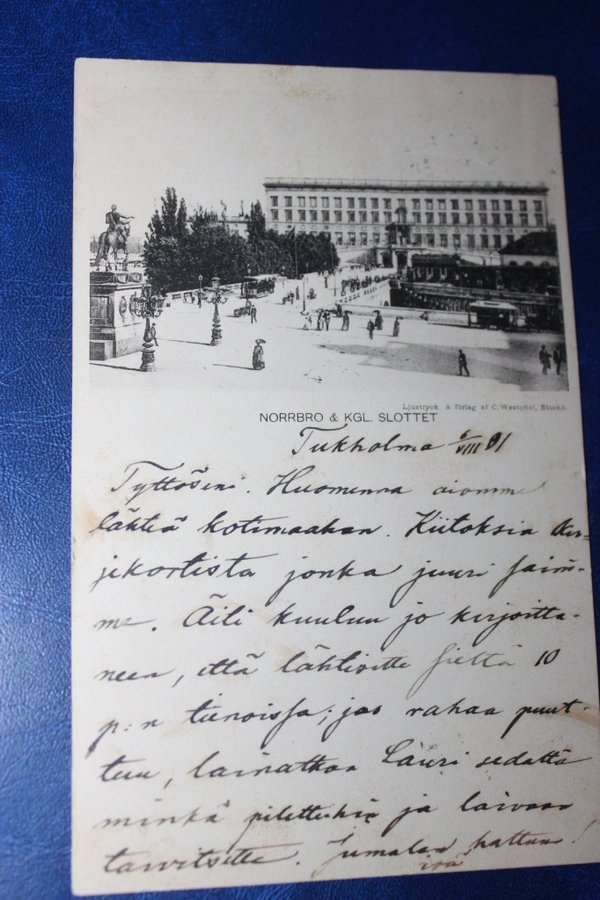 Ljustryck & förlag af C. Westphal, Stockh
NORRBRO & KGL. SLOTTET
Tukholma VIII 01
Tyttöseni. Huomenna aiomme
lähteä kotimaahan. Kiitoksia kir-
jekortista jonka juuri saim-
me. Äiti kuuluu jo kirjoitta-
neen, että lähtisitte sieltä 10
p:n tienoissa; jos rahaa puut-
tuu, lainatkaa Lauri sedältä
minkä pilettiukin ja laivaan
tarvitsette. Jumalan haltuun!
isä